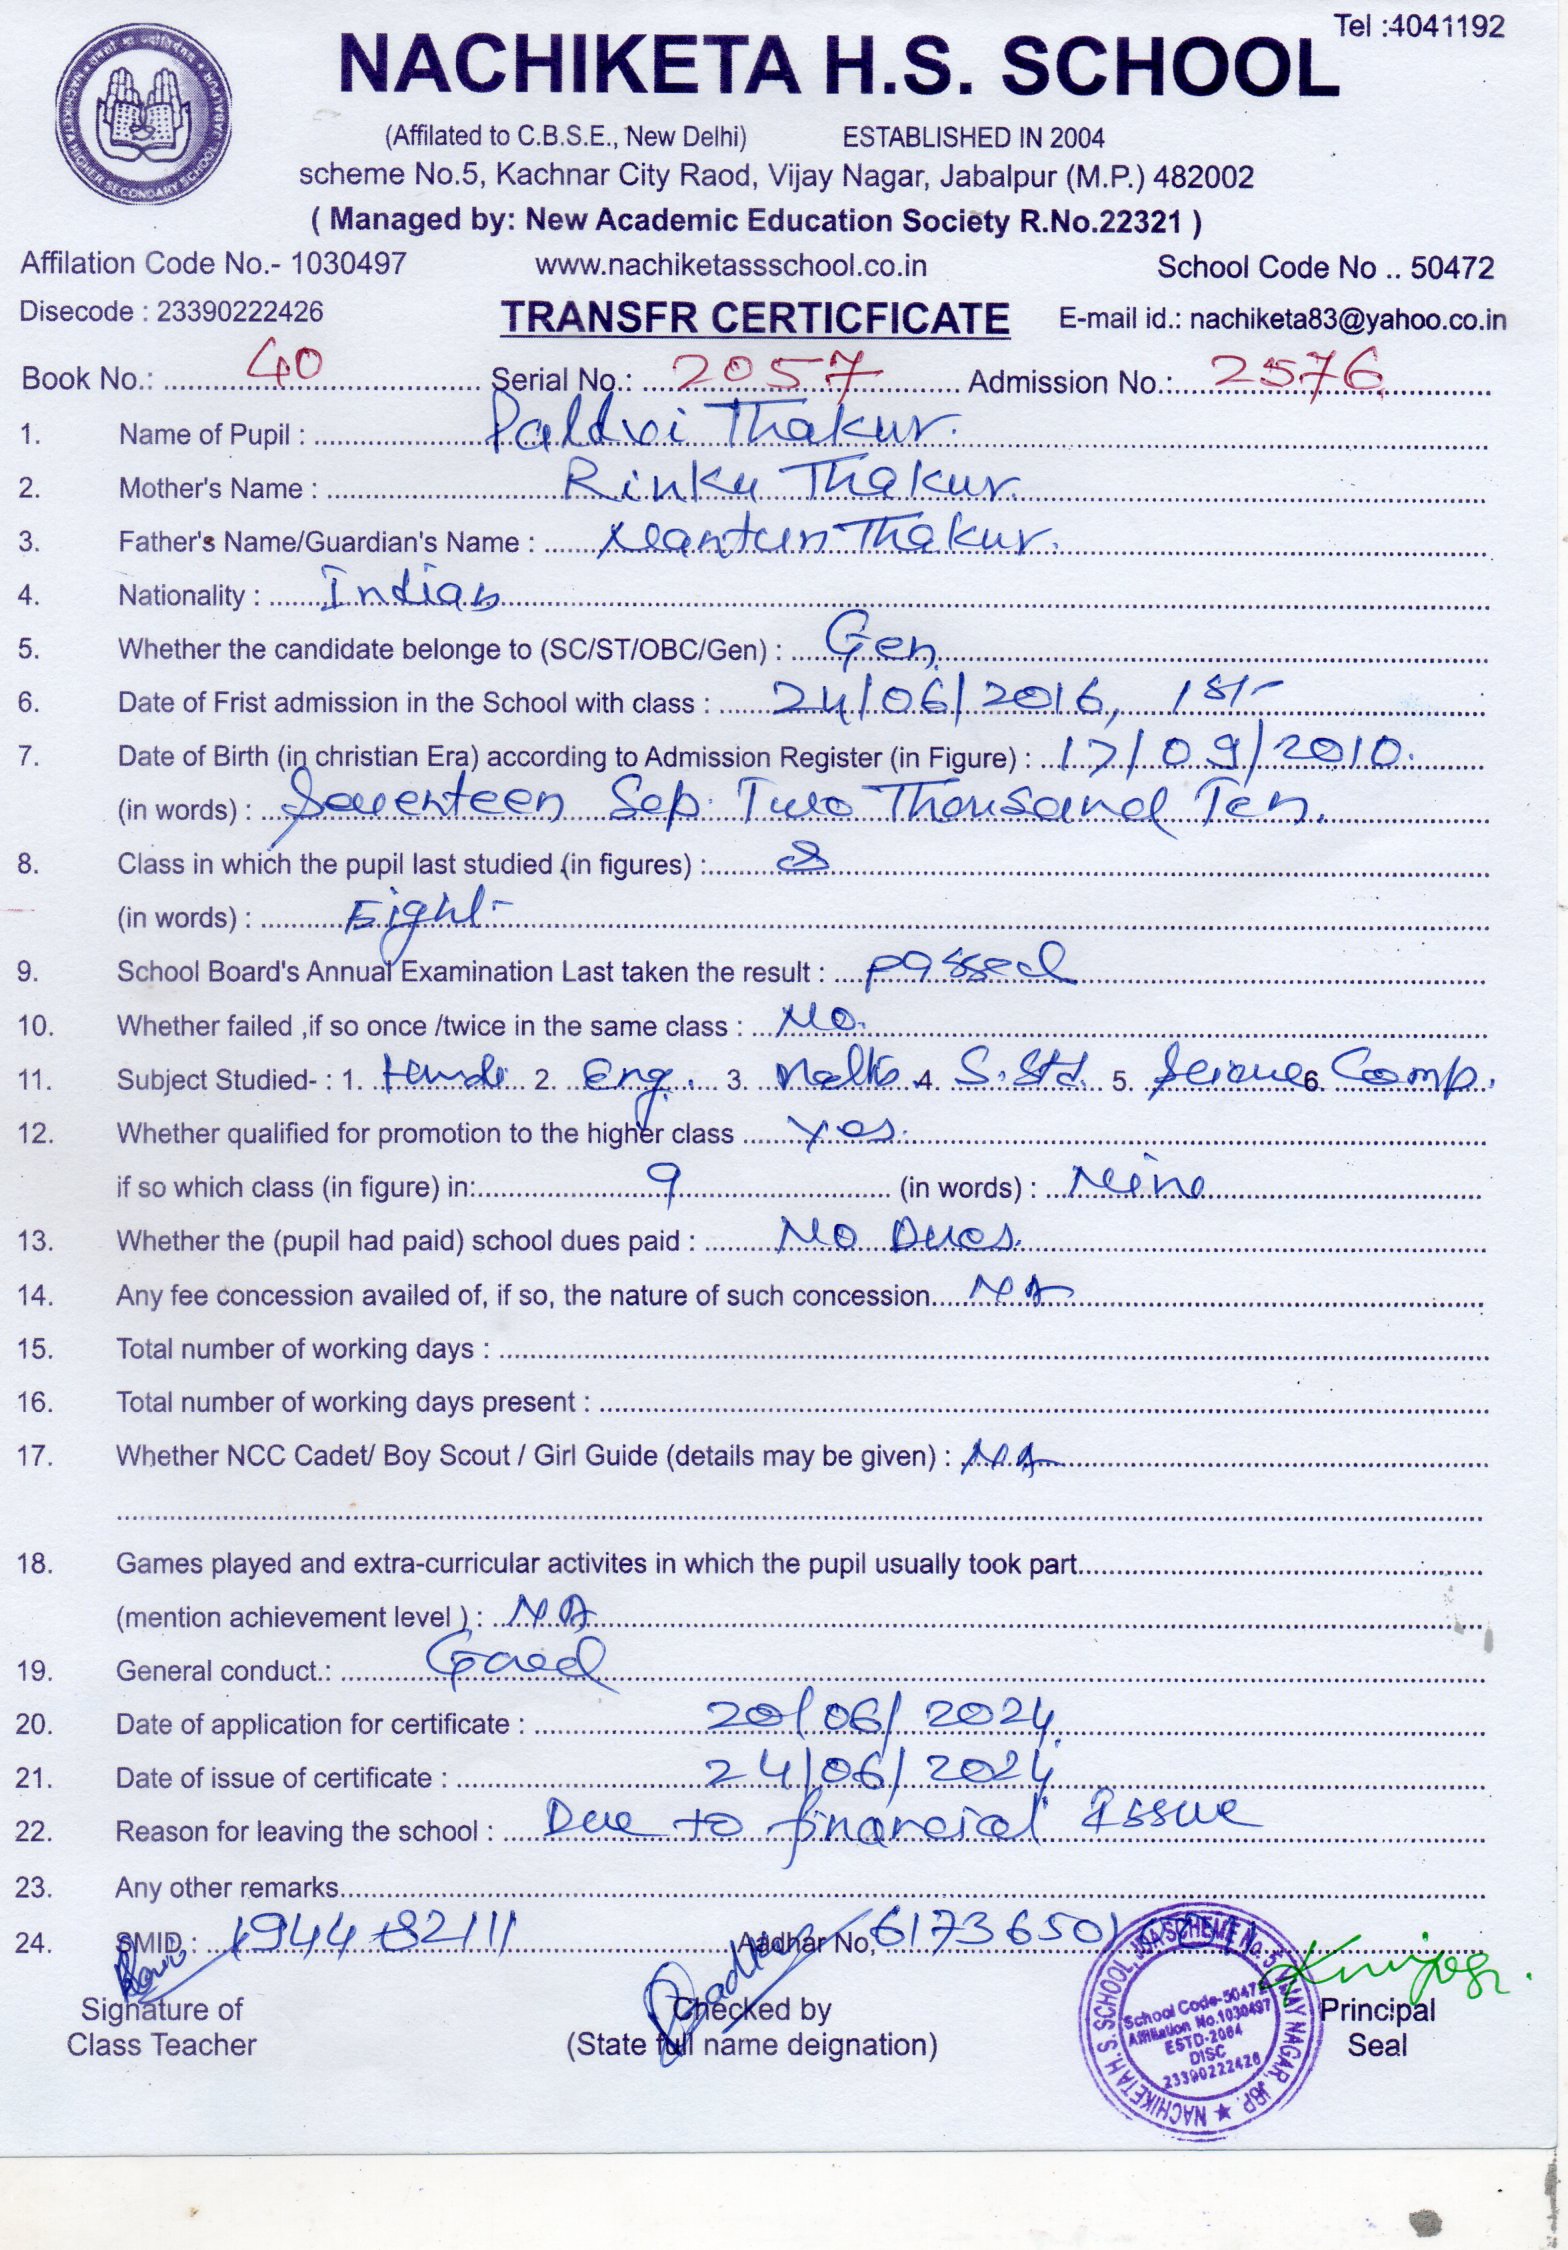 Tel :4041192
NACHIKETA H.S. SCHOOL
(Affilated to C.B.S.E., New Delhi) ESTABLISHED IN 2004
scheme No.5, Kachnar City Raod, Vijay Nagar, Jabalpur (M.P.) 482002
( Managed by: New Academic Education Society R.No.22321 )
Affilation Code No.- 1030497 www.nachiketassschool.co.in School Code No .. 50472
Disecode : 23390222426 TRANSFR CERTICFICATE E-mail id.: nachiketa83@yahoo.co.in
Book No.: 40 Serial No.: 2057 Admission No.: 2576
1. Name of Pupil : Thakur.
2. Mother's Name : Rinku Thakur.
3. Father's Name/Guardian's Name : Mantun Thakur.
4. Nationality : Indian
5. Whether the candidate belonge to (SC/ST/OBC/Gen) : Gen
6. Date of Frist admission in the School with class : 24/06/2016, 1st
7. Date of Birth (in christian Era) according to Admission Register (in Figure) : 17/09/2010.
(in words) : Seventeen Sep. Two Thousand Ten.
8. Class in which the pupil last studied (in figures) : 8
(in words) : Eight
9. School Board's Annual Examination Last taken the result : passed
10. Whether failed ,if so once /twice in the same class : No.
11. Subject Studied- : 1. Hindi 2. Eng. 3. Maths 4. S.Std. 5. Science 6. Comp.
12. Whether qualified for promotion to the higher class Yes.
if so which class (in figure) in: 9 (in words) : Nine
13. Whether the (pupil had paid) school dues paid : No Dues.
14. Any fee concession availed of, if so, the nature of such concession. NA
15. Total number of working days :
16. Total number of working days present :
17. Whether NCC Cadet/ Boy Scout / Girl Guide (details may be given) : NA
18. Games played and extra-curricular activites in which the pupil usually took part
(mention achievement level ) : NA
19. General conduct.: Good
20. Date of application for certificate : 20/06/2024
21. Date of issue of certificate : 24/06/2024
22. Reason for leaving the school : Due to financial Issue
23. Any other remarks
24. SMID : 194482111 Aadhar No,
Signature of Checked by Principal
Class Teacher (State full name deignation) Seal
NACHIKETA H. S. SCHOOL, JDA SCHEME No. 5 VIJAY NAGAR, JBP.
School Code-50472
Affiliation No.1030497
ESTD-2004
DISC
23390222426